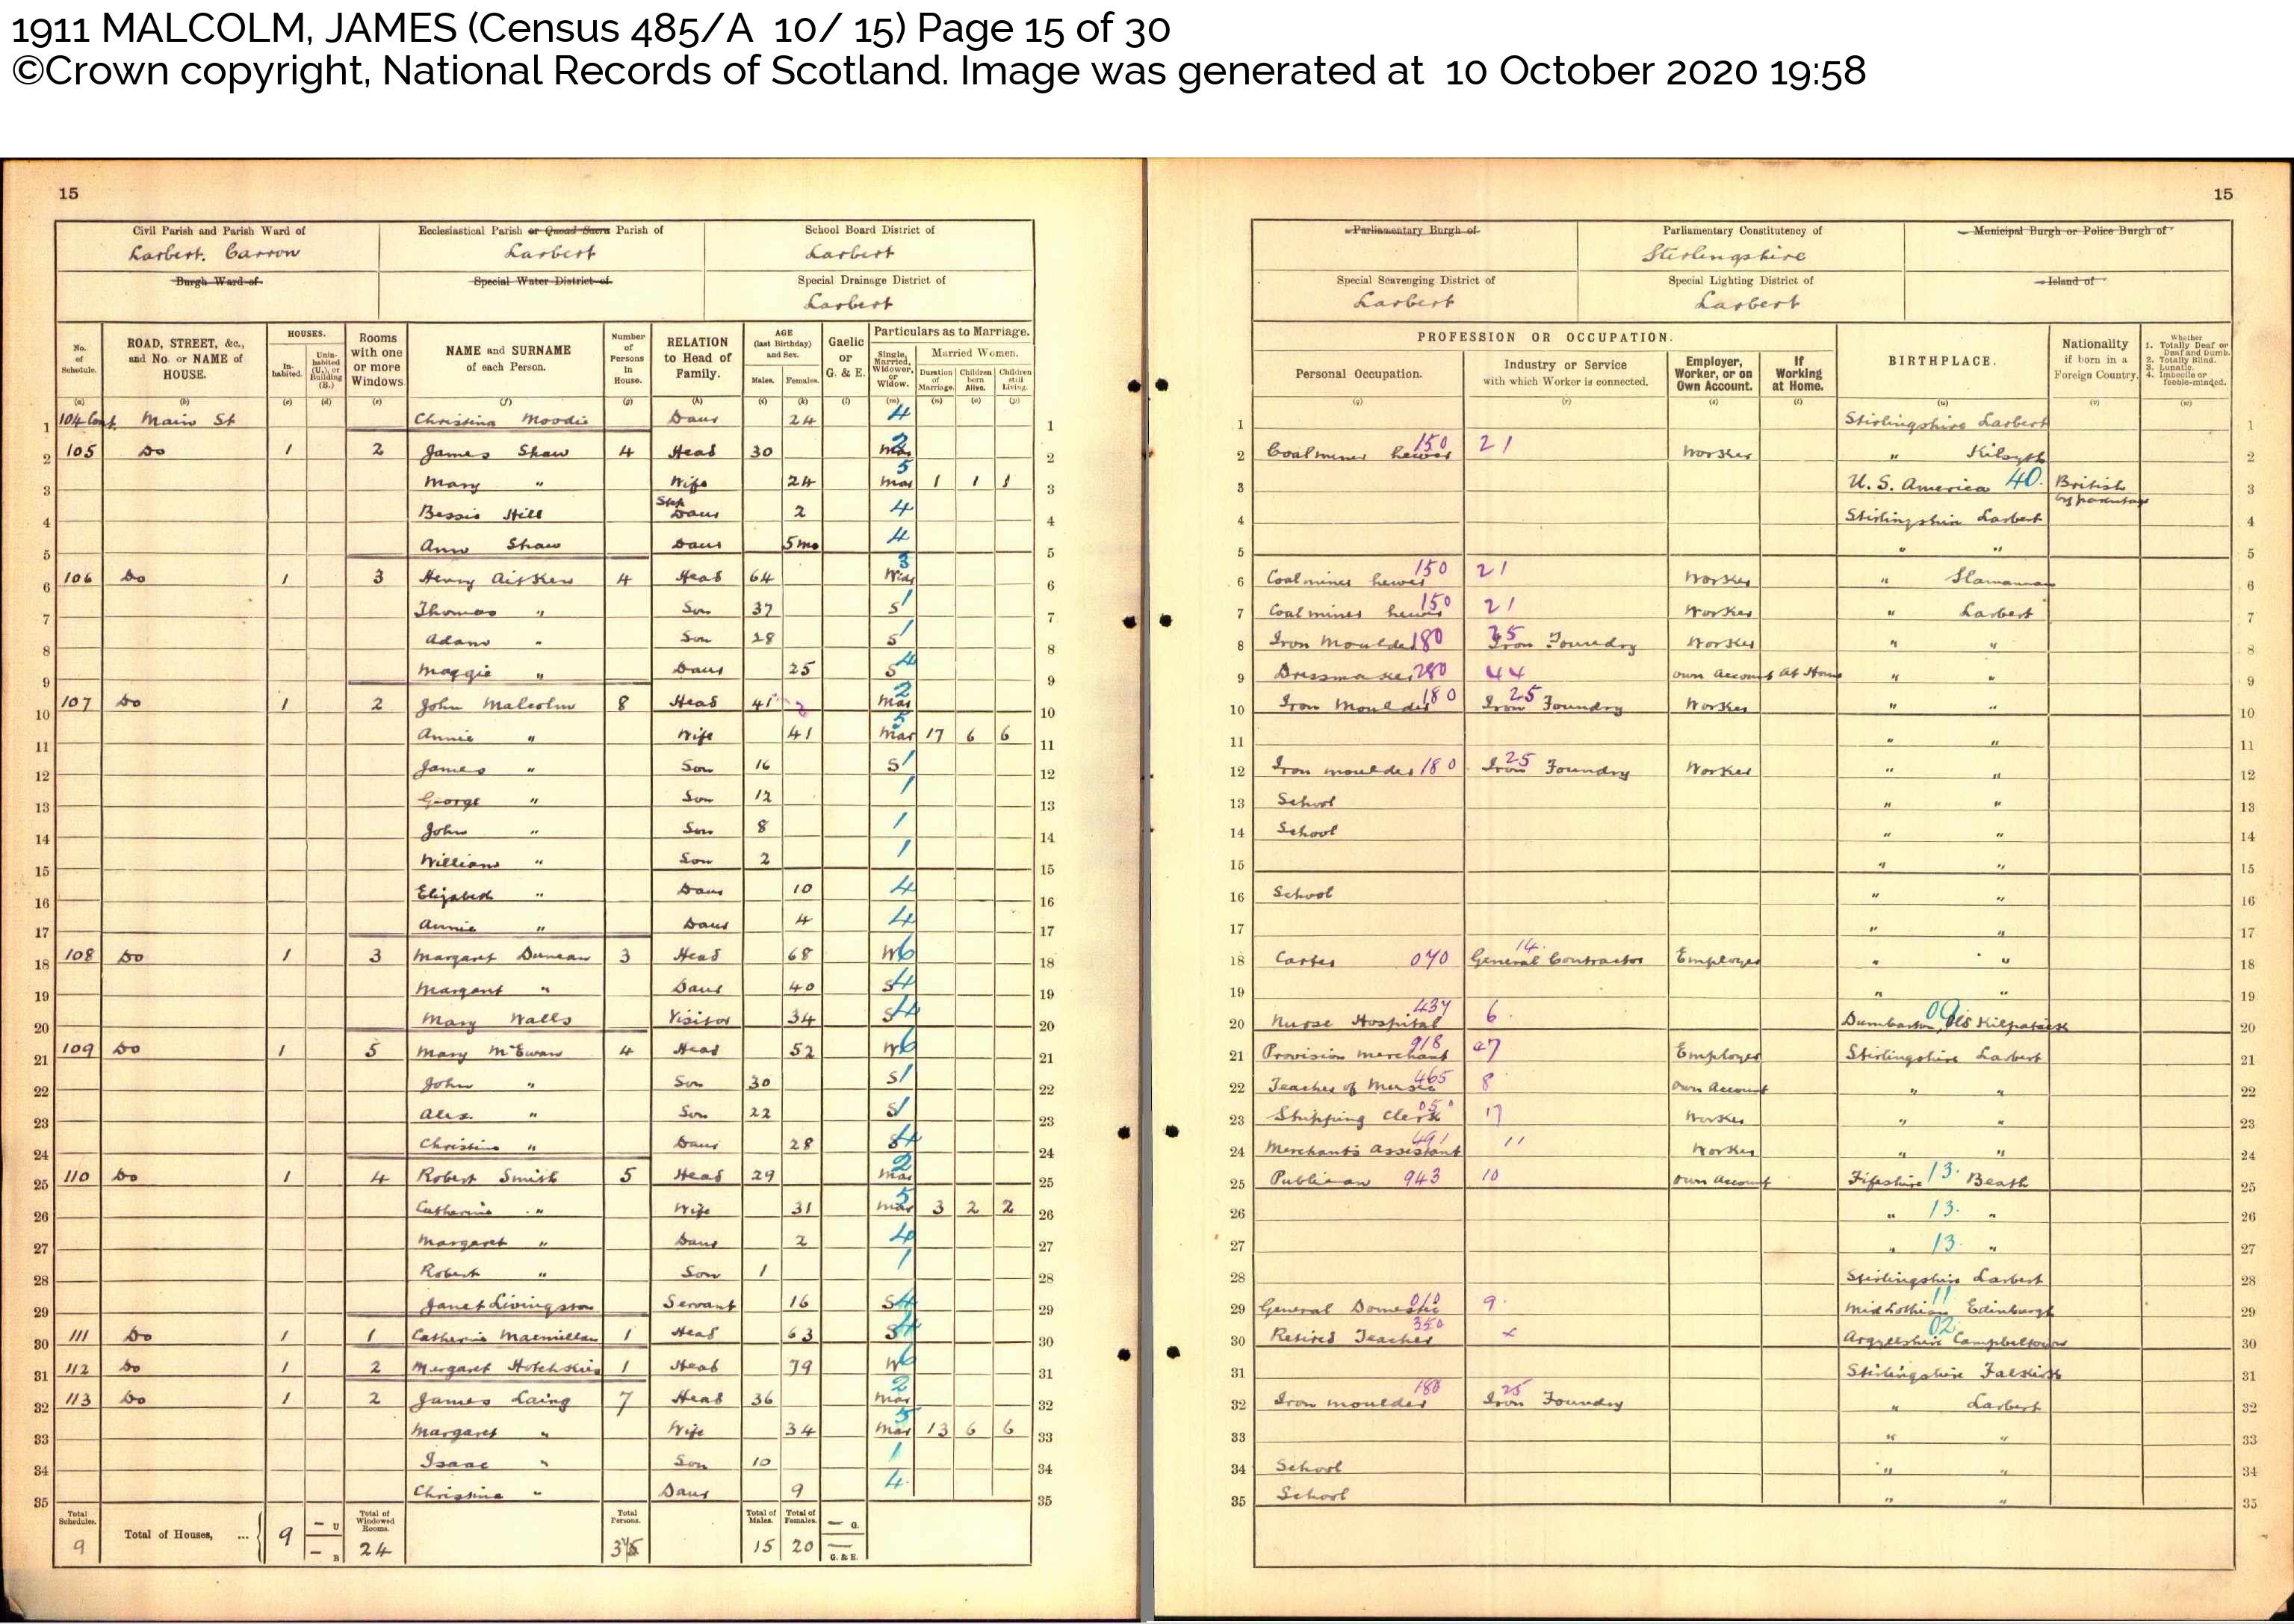 1911 MALCOLM, JAMES (Census 485/A 10/ 15) Page 15 of 30
©Crown copyright, National Records of Scotland. Image was generated at 10 October 2020 19:58
15
Civil Parish and Parish Ward of Ecclesiastical Parish or Quoad Sacra Parish of School Board District of
Larbert. Carron Larbert Larbert
Burgh Ward of Special Water District of Special Drainage District of
Larbert
No. of Schedule. ROAD, STREET, &c., and No. or NAME of HOUSE. HOUSES. Inhabited. Uninhabited (U.), or Building (B.) Rooms with one or more Windows NAME and SURNAME of each Person. Number of Persons in House. RELATION to Head of Family. AGE (last Birthday) and Sex. Males. Females. Gaelic or G. & E. Particulars as to Marriage. Single, Married, Widower, or Widow. Married Women. Duration of Marriage. Children born Alive. Children still Living.
(a) (b) (c) (d) (e) (f) (g) (h) (i) (k) (l) (m) (n) (o) (p)
1 104 Cont. Main St Christina Moodie Daur 24 4 1
2 105 Do 1 2 James Shaw 4 Head 30 Mar 2 2
3 Mary " Wife 24 Mar 5 1 1 1 3
4 Bessie Hill Step Daur 2 4 4
5 Ann Shaw Daur 5mo 4 5
6 106 Do 1 3 Henry Aitken 4 Head 64 Wid 3 6
7 Thomas " Son 37 S 1 7
8 Adam " Son 28 S 1 8
9 Maggie " Daur 25 S 4 9
10 107 Do 1 2 John Malcolm 8 Head 41 Mar 2 10
11 Annie " Wife 41 Mar 5 17 6 6 11
12 James " Son 16 S 1 12
13 George " Son 12 1 13
14 John " Son 8 1 14
15 William " Son 2 1 15
16 Elizabeth " Daur 10 4 16
17 Annie " Daur 4 4 17
18 108 Do 1 3 Margaret Duncan 3 Head 68 W 6 18
19 Margaret " Daur 40 S 4 19
20 Mary Walls Visitor 34 S 4 20
21 109 Do 1 5 Mary McEwan 4 Head 52 W 6 21
22 John " Son 30 S 1 22
23 Alex. " Son 22 S 1 23
24 Christina " Daur 28 S 4 24
25 110 Do 1 4 Robert Smith 5 Head 29 Mar 2 25
26 Catherine " Wife 31 Mar 5 3 2 2 26
27 Margaret " Daur 2 4 27
28 Robert " Son 1 1 28
29 Janet Livingston Servant 16 S 4 29
30 111 Do 1 1 Catherine Macmillan 1 Head 63 S 4 30
31 112 Do 1 2 Margaret Hotchkiss 1 Head 79 W 6 31
32 113 Do 1 2 James Laing 7 Head 36 Mar 2 32
33 Margaret " Wife 34 Mar 5 13 6 6 33
34 Isaac " Son 10 1 34
35 Christina " Daur 9 4 35
Total Schedules. 9 Total of Houses, ... 9 – U – B Total of Windowed Rooms. 24 Total Persons. 35 Total of Males. 15 Total of Females. 20 — G. — G. & E.
15
Parliamentary Burgh of Parliamentary Constitutency of Municipal Burgh or Police Burgh of
Stirlingshire
Special Scavenging District of Special Lighting District of Island of
Larbert Larbert
PROFESSION OR OCCUPATION.
Personal Occupation. Industry or Service with which Worker is connected. Employer, Worker, or on Own Account. If Working at Home. BIRTHPLACE. Nationality if born in a Foreign Country. Whether 1. Totally Deaf or Deaf and Dumb. 2. Totally Blind. 3. Lunatic. 4. Imbecile or feeble-minded.
(q) (r) (s) (t) (u) (v) (w)
1 Stirlingshire Larbert 1
2 Coalminer hewer 150 21 Worker " Kilsyth 2
3 U.S. America 40. British by parentage 3
4 Stirlingshire Larbert 4
5 " " 5
6 Coalminer hewer 150 21 Worker " Slamannan 6
7 Coalminer hewer 150 21 Worker " Larbert 7
8 Iron Moulder 180 25 Iron Foundry Worker " " 8
9 Dressmaker 280 44 Own Account At Home " " 9
10 Iron Moulder 180 25 Iron Foundry Worker " " 10
11 " " 11
12 Iron moulder 180 25 Iron Foundry Worker " " 12
13 School " " 13
14 School " " 14
15 " " 15
16 School " " 16
17 " " 17
18 Carter 070 14. General Contractor Employer " " 18
19 " " 19
20 Nurse Hospital 437 6 Dumbarton, Old Kilpatrick 20
21 Provision merchant 918 27 Employer Stirlingshire Larbert 21
22 Teacher of Music 465 8 Own Account " " 22
23 Shipping Clerk 050 17 Worker " " 23
24 Merchants Assistant 491 11 Worker " " 24
25 Publican 943 10 Own Account Fifeshire 13. Beath 25
26 " 13. " 26
27 " 13. " 27
28 Stirlingshire Larbert 28
29 General Domestic 010 9. Midlothian 11 Edinburgh 29
30 Retired Teacher 350 × Argyleshire 02 Campbeltown 30
31 Stirlingshire Falkirk 31
32 Iron moulder 180 25 Iron Foundry " Larbert 32
33 " " 33
34 School " " 34
35 School " " 35